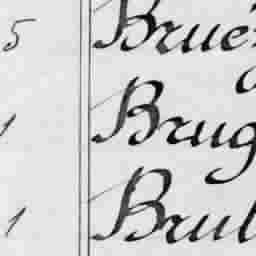 5 Brué
1 Brug
1 Brul